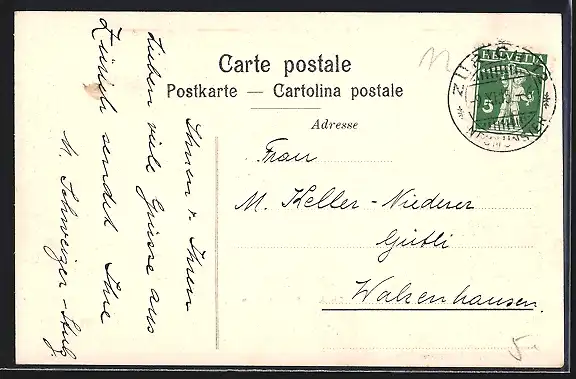 Carte postale
Postkarte — Cartolina postale
Adresse
HELVETIA
5 5
ZÜRICH
Frau
M. Keller-Niederer
Gütli
Walzenhausen.
Ihnen & Ihren
Lieben viele Grüsse aus
Zürich sendet Ihre
M. Schweizer-
5.-